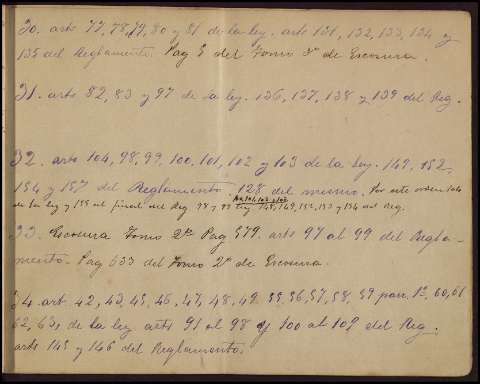 30. arts 77, 78, 79, 80 y 81 de la ley. arts 131, 132, 133, 134 y
135 del Reglamento. Pag 5 del Tomo 3º de Escosura.
31. arts 82, 83 y 97 de la ley. 136, 137, 138 y 139 del Reg.
32. arts 104, 98, 99, 100, 101, 102 y 103 de la ley. 149, 152,
154 y 157 del Reglamento. 128 del mismo. Por este orden 104
de la ley y 155 al final del Reg 98 y 99 ley 148, 149, 152, 153 y 154 del Reg.
33. Escosura Tomo 2º Pag 579. arts 97 al 99 del Regla-
mento. Pag 533 del Tomo 2º de Escosura.
34. art. 42, 43, 45, 46, 47, 48, 49. 55, 56, 57, 58, 59 parr. 1º, 60, 61
62, 63, de la ley arts 91 al 98 y 100 al 109 del Reg.
arts 145 y 146 del Reglamento.